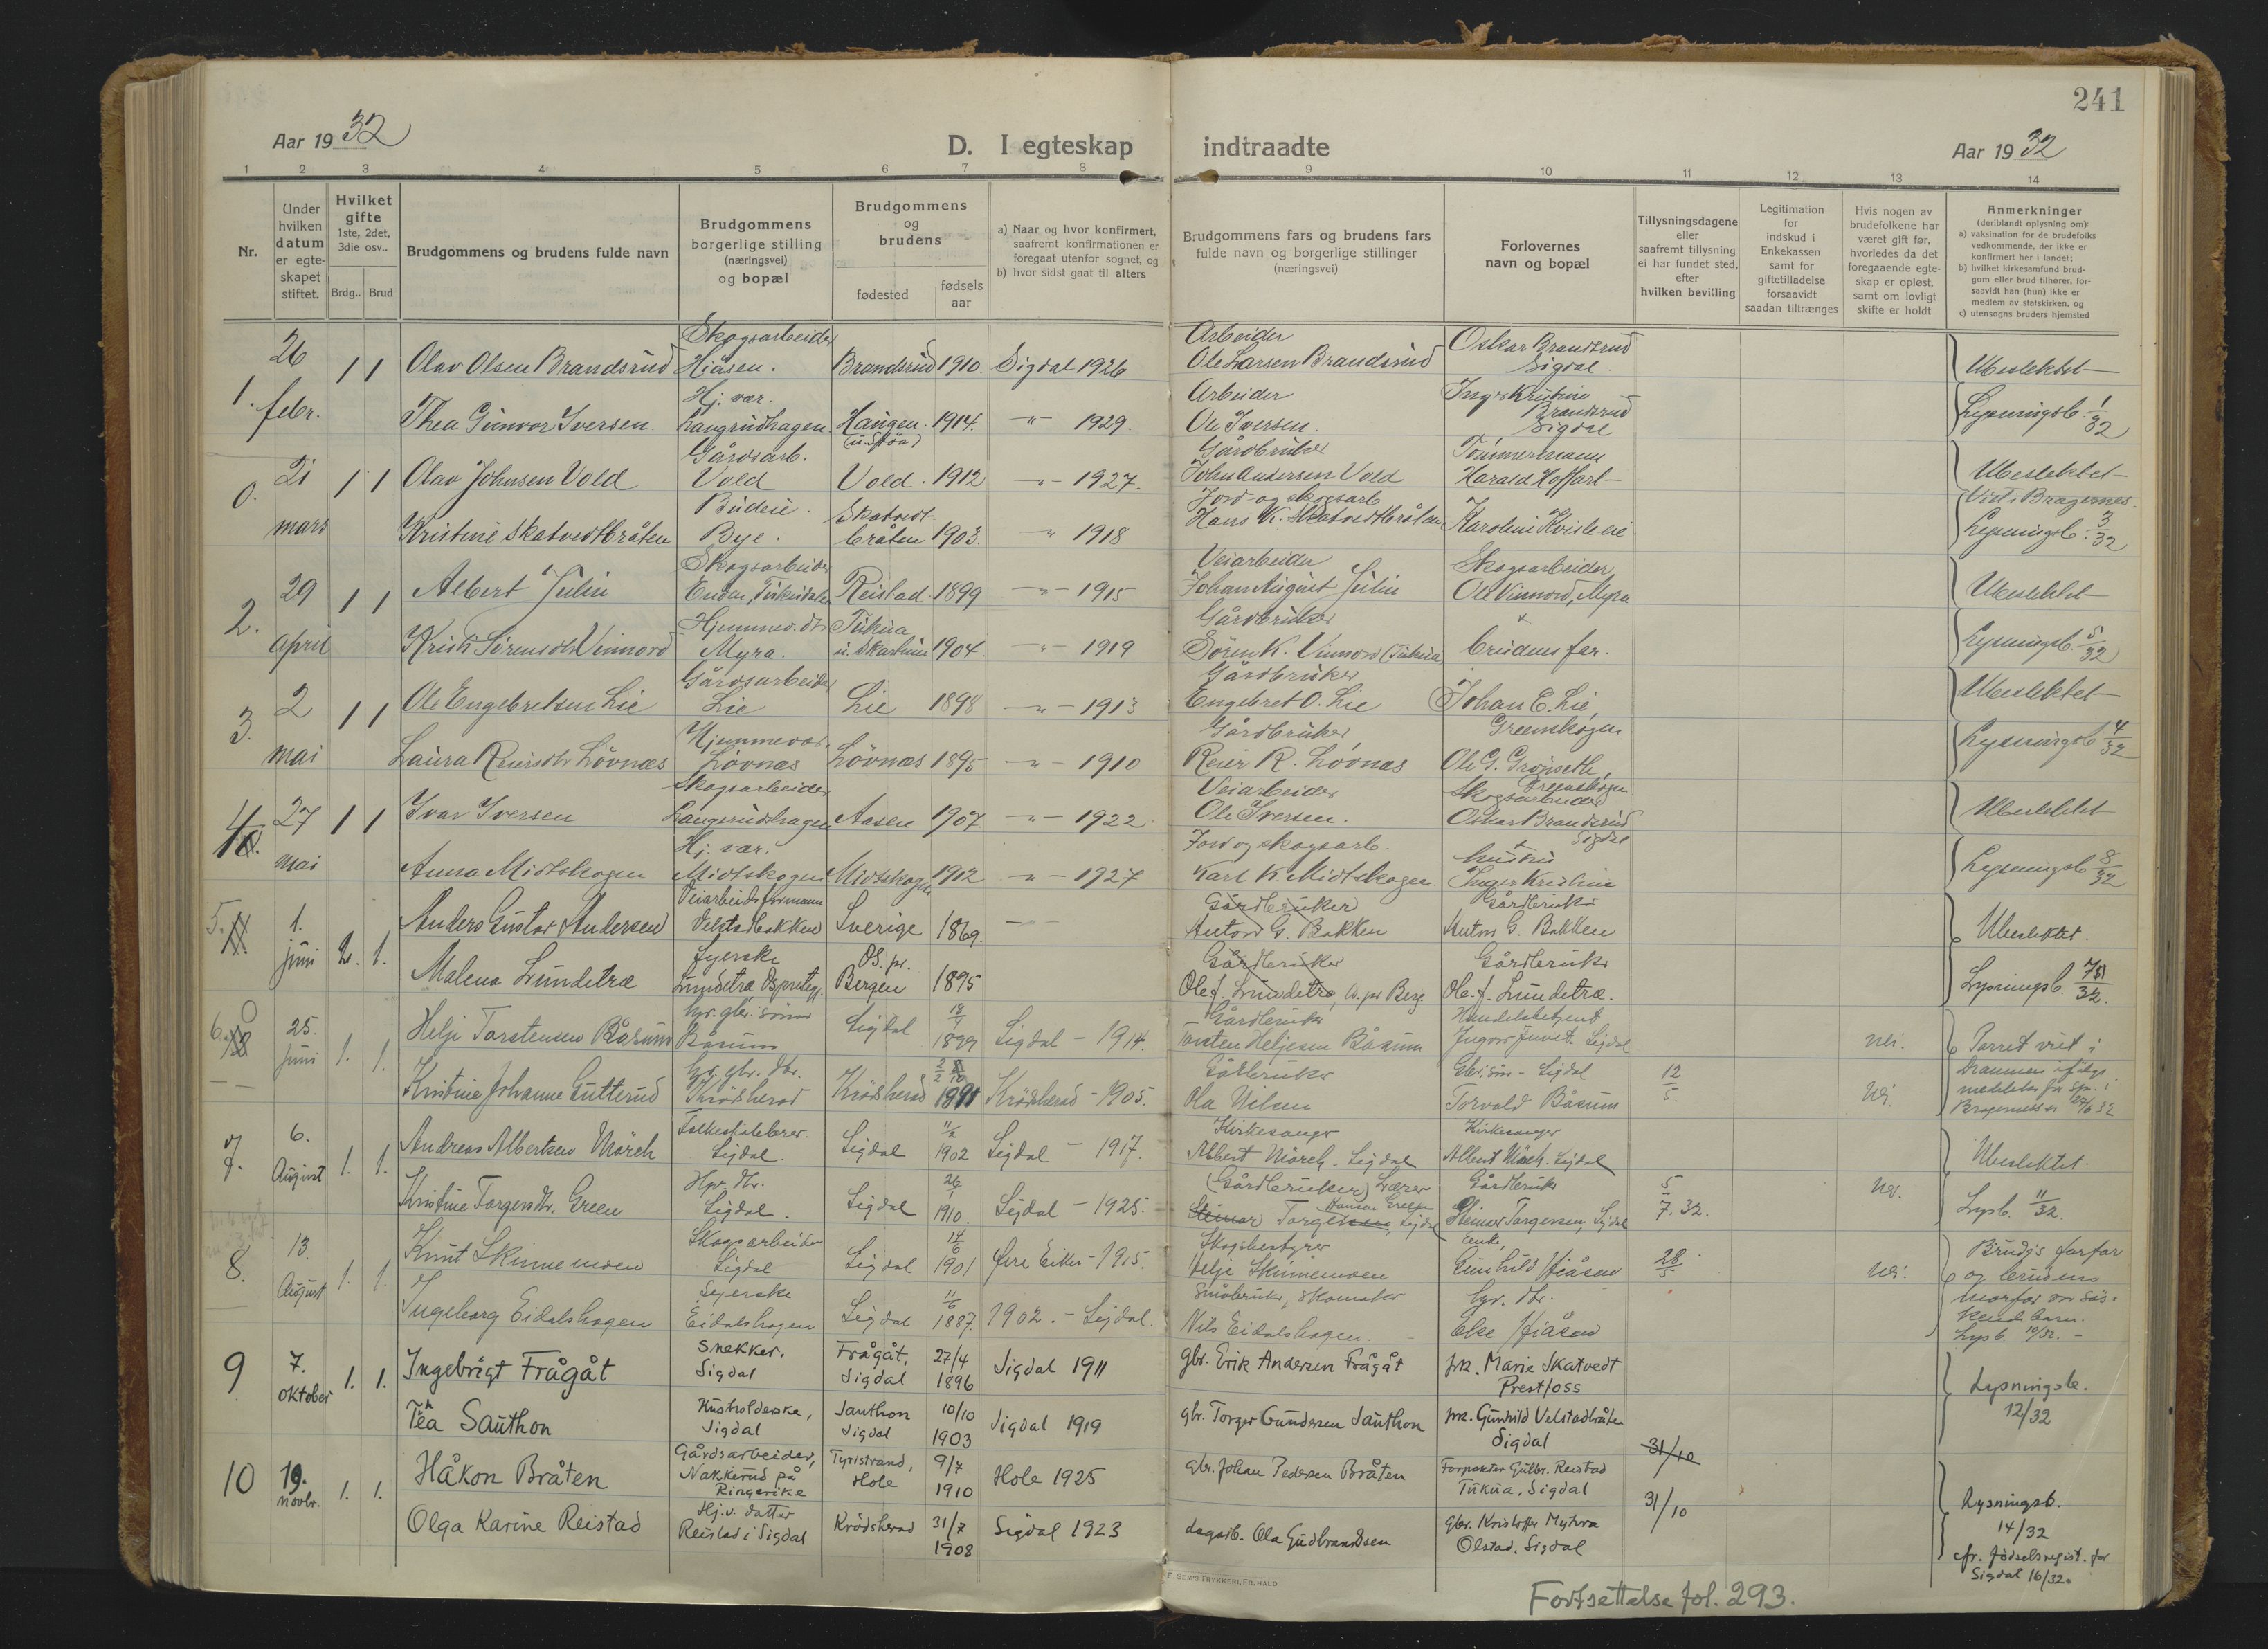 241
Aar 1932
D. I egteskap indtraadte
Aar 1932
1 2 3 4 5 6 7 8 9 10 11 12 13 14
Nr.
Under hvilken datum er egte-skapet stiftet.
Hvilket gifte 1ste, 2det, 3die osv..
Brdg.. Brud
Brudgommens og brudens fulde navn
Brudgommens borgerlige stilling (næringsvei) og bopæl
Brudgommens og brudens
fødested
fødsels aar
a) Naar og hvor konfirmert, saafremt konfirmationen er foregaat utenfor sognet, og
b) hvor sidst gaat til alters
Brudgommens fars og brudens fars fulde navn og borgerlige stillinger (næringsvei)
Forlovernes navn og bopæl
Tillysningsdagene eller saafremt tillysning ei har fundet sted, efter hvilken bevilling
Legitimation for indskud i Enkekassen samt for giftetilladelse forsaavidt saadan tiltrænges
Hvis nogen av brudefolkene har været gift før, hvorledes da det foregaaende egte-skap er opløst, samt om lovligt skifte er holdt
Anmerkninger (deriblandt oplysning om):
a) vaksination for de brudefolks vedkommende, der ikke er konfirmert her i landet;
b) hvilket kirkesamfund brud-gom eller brud tilhører, for-saavidt han (hun) ikke er medlem av statskirken, og
c) utensogns bruders hjemsted
1. 26 febr. 1 1 Olav Olsen Brandsrud Skogsarbeider Hiåsen. Brandsrud 1910 Sigdal 1926 Arbeider Ole Larsen Brandsrud Oskar Brandsrud Sigdal. Ubeslektet
Thea Gunvor Iversen. Hj. vær. Langrudhagen Haugen. 1914. -"- 1929. Arbeider Ole Iversen. Inger Kristine Brandsrud Sigdal Lysningsb. 1/32
0. 21 mars 1 1 Olav Johnsen Vold Gårdsarb. Vold Vold. 1912 -"- 1927. Gårdbruker John Andersen Vold Tömmermann Harald Hoffart Ubeslektet Viet i Bragernes.
Kristine Skatvedtbråten Budeie. Bye. Skatvedt-bråten 1903. -"- 1918 Jord- og skogsarb. Hans K. Skatvedtbråten Karoline Lysningsb. 3/32
2. 29 april 1 1 Albert Julin Skogsarbeider Reistad 1899 -"- 1915 Veiarbeider Johan August Julin Skogsarbeider Ole Vinnord, Myra Ubeslektet
Kristi Sørensdtr Vinnord Hjemmev. dtr Myra. Tukua 1904. -"- 1919 Gårdbruker Søren K. Vinnord (Tukua) brudens far. Lysningsb. 5/32
3. 2 mai 1 1 Ole Engebretsen Lie Gårdsarbeider Lie Lie 1898 -"- 1913 Gårdbruker Engebret O. Lie Johan E. Lie, Greenskogen Ubeslektet
Laura Reiersdtr Lövnæs Hjemmevær. Lövnæs Lövnæs 1895 -"- 1910 Gårdbruker Reier R. Lövnæs Ole G. Grønseth, Greenskogen Lysningsb. 4/32
4. 27 mai 1 1 Ivar Iversen Skogsarbeider Langerudshagen Aasen 1907 -"- 1922 Veiarbeider Ole Iversen. Skogsarbeider Oskar Brandsrud Sigdal Ubeslektet
Anna Midtskogen Hj. vær. Midtskogen Midtskogen 1912 -"- 1927 Jord og skogsarb. Karl K. Midtskogen Inger Kristine Lysningsb. 8/32
5. 1. juni 2. 1. Anders Gustav Andersen Veiarbeidsformann Velstadbakken Sverige 1869. Gårdbruker Anton G. Bakken Gårdbruker Anton G. Bakken Ubeslektet.
Malena Lundetræ Syerske Lundetræ Os. pr. Bergen 1895 Gårdbruker Ole J. Lundetræ, Os. pr. Berg. Gårdbruker Ole. J. Lundetræ. Lysningsb. 32.
6. 25. juni 1. 1. Helje Torstensen Båsum Båsum Sigdal 1899 Sigdal - 1914. Gårdbruker Torsten Heljesen Båsum Handelsbetjent Ingvar Juvet. Sigdal nei. Parret viet i Drammen ifølge
Kristine Johanne Gutterud Krödsherad Krödsherad Krödsherad - 1905. Gårbruker Ola Nilsen Gbr.sön - Sigdal Torvald Båsum 12/5. Nei. 27/6 32
7. 6. August 1. 1. Andreas Albertsen Mörch Folkeskolelærer. Sigdal. Sigdal 11/2 1902 Sigdal - 1917. Kirkesanger Albert Mörch. Sigdal Kirkesanger Albert Mörch. Sigdal Ubeslektet.
Kristine Torgersdtr. Green Hjv. dtr. Sigdal. Sigdal 26/1 1910. Sigdal - 1925. (Gårdbruker) Lærer Torger Hansen Green, Sigdal Gårdbruker Steinar Torgersen, Sigdal 5/7. 32. Nei. Lysb. 11/32.
8. 13. August 1. 1. Knut Skinnemoen Skogsarbeider Sigdal Sigdal 14/6 1901 Øvre Eiker - 1915. Skogbestyrer Helje Skinnemoen Enke, Gunhild Hiåsen 28/5 Nei. Brudg's farfar og brudens morfar var søs-kende barn.
Ingeborg Eidalshagen Syerske Eidalshagen Sigdal 11/6 1887. 1902. - Sigdal. Småbruker, skomaker Nils Eidalshagen. Else Hiåsen Lysb. 10/32. -
9 7. oktober 1. 1. Ingebrigt Frågåt Snekker. Sigdal Frågåt, Sigdal 27/4 1896 Sigdal 1911 gbr. Erik Andersen Frågåt frk. Marie Skatvedt Prestfoss Lysningsb. 12/32
Thea Sauthon Husholderske, Sigdal Sauthon Sigdal 10/10 1903 Sigdal 1919 gbr. Torger Gundersen Sauthon frk. Gunhild Velstadbråten Sigdal
10 19. novbr. 1. 1. Håkon Bråten Gårdsarbeider, Nakkerud på Ringerike Tyristrand, Hole 9/7 1910 Hole 1925 Gbr. Johan Pedersen Bråten Forpakter Gulbr. Reistad Tukua, Sigdal 31/10 Lysningsb. 14/32
Olga Karine Reistad Hj.v. datter Reistad i Sigdal Krödsherad 31/7 1908 Sigdal 1923 dagarb. Ola Gudbrandsen gbr. Kristoffer Olstad, Sigdal 31/10 cfr. fødselsregist. for Sigdal 16/32.
E. SEM'S TRYKKERI, FR.HALD
Fortsettelse fol. 293.